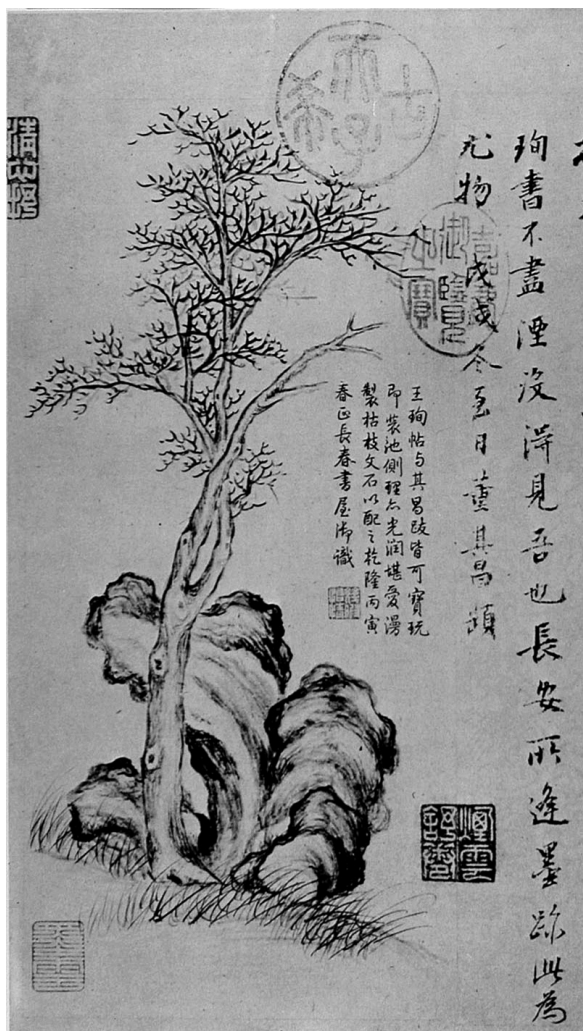 珣書不盡湮沒得見吾也長安所逢墨跡此為
尤物戊戌冬至日董其昌題
王珣帖与其昌跋皆可寶玩
即裝池側理亦光潤堪愛漫
製枯枝文石以配之乾隆丙寅
春正長春書屋御識
古希天子
嘉慶御覽之寶